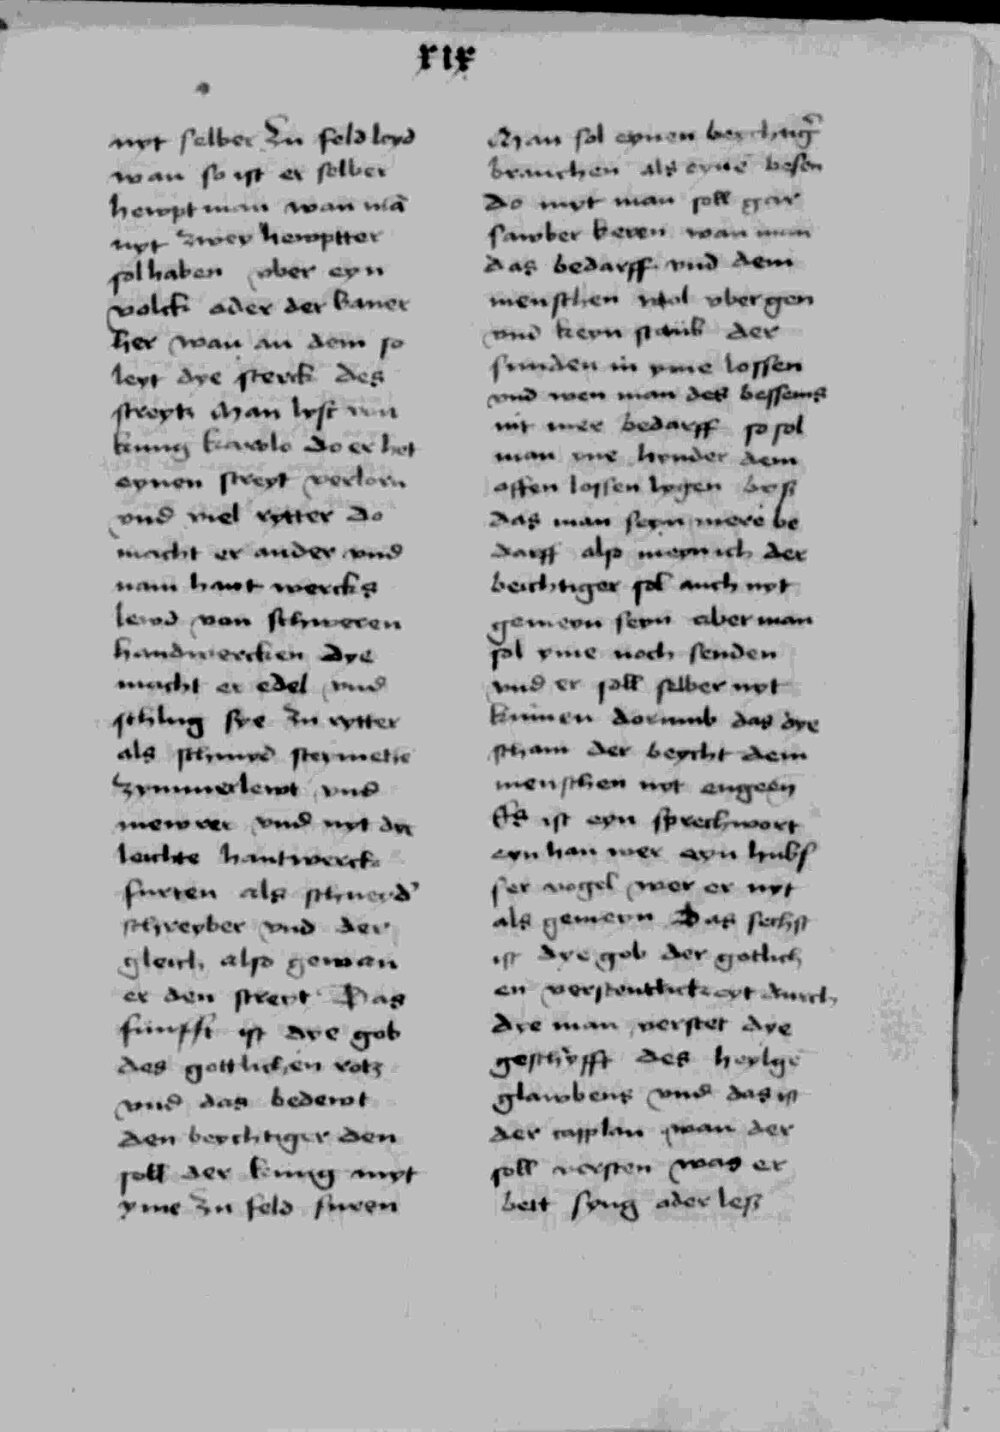 xix
nyt selber Zu feld leyd
wan so ist er selber
hewptman wan mā
nyt Zwey hewptter
sol haben vber eyn
volck ader der baner
her wan an dem so
leyt dye sterck des
streytz Man lyst von
kunig karolo do er het
eynen streyt verlorn
vnd viel rytter do
macht er ander vnd
nam hant wercks
lewd von schweren
handwercken dye
macht er edel vnd
schlug sye Zu rytter
als schmyd steymetze
Zymmerlewt vnd
mewrer vnd nyt dye
leichte hantwerck
furten als schneyd'
schreyber vnd der
gleich also gewan
er den streyt Das
funfft ist dye gob
des gottlichen rotz
vnd das bedewt
den beychtiger den
soll der kunig myt
yme Zu feld furen
Man sol eynen beychtig'
brauchen als eynē besen
do myt man soll gar
sawber keren wan man
das bedarff vnd dem
menschen wol vbergen
vnd keyn staub der
sunden in yme lossen
vnd wen man des bessems
nit mer bedarff so sol
man yne hynder dem
offen lossen lygen byß
das man seyn mere be
darff also meyn ich der
beichtiger sol auch nyt
gemeyn seyn aber man
sol yme noch senden
vnd er soll selber nyt
kumen dorumb das dye
scham der beycht dem
menschen nyt engeen
Es ist eyn sprechwort
eyn han wer eyn hubs
ser vogel wer er nyt
als gemeyn Das sechst
ist dye gob der gotlich
en verstentlickeyt durch
dye man verstet dye
geschryfft des heylgē
glawbens vnd das ist
der capplan wan der
soll versten was er
bett syng ader leß